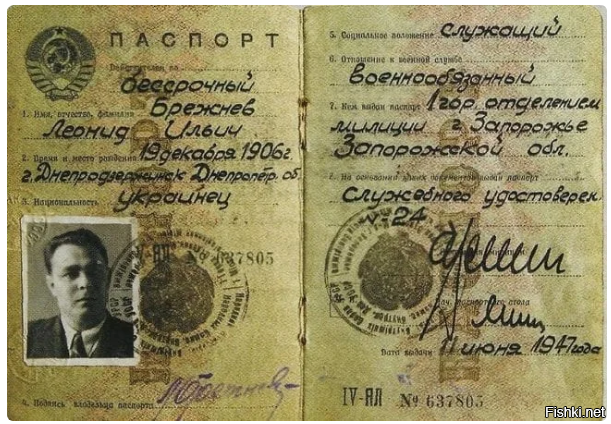 ПАСПОРТ
Действителен на
бессрочный
1. Имя, отчество, фамилия Брежнев
Леонид Ильич
2. Время и место рождения 19 декабря 1906 г.
г. Днепродзержинск Днепропетр. об.
3. Национальность украинец
IV-ЯЛ № 637805
4. Подпись владельца паспорта
5. Социальное положение служащий
6. Отношение к военной службе
военнообязанный
7. Кем выдан паспорт 1 гор. отделением
милиции г. Запорожье
Запорожской обл.
8. На основании каких документов выдан паспорт
служебного удостоверен.
№ 24
Нач. паспортного стола
Дата выдачи 11 июня 1947 года
IV-ЯЛ № 637805
Fishki.net